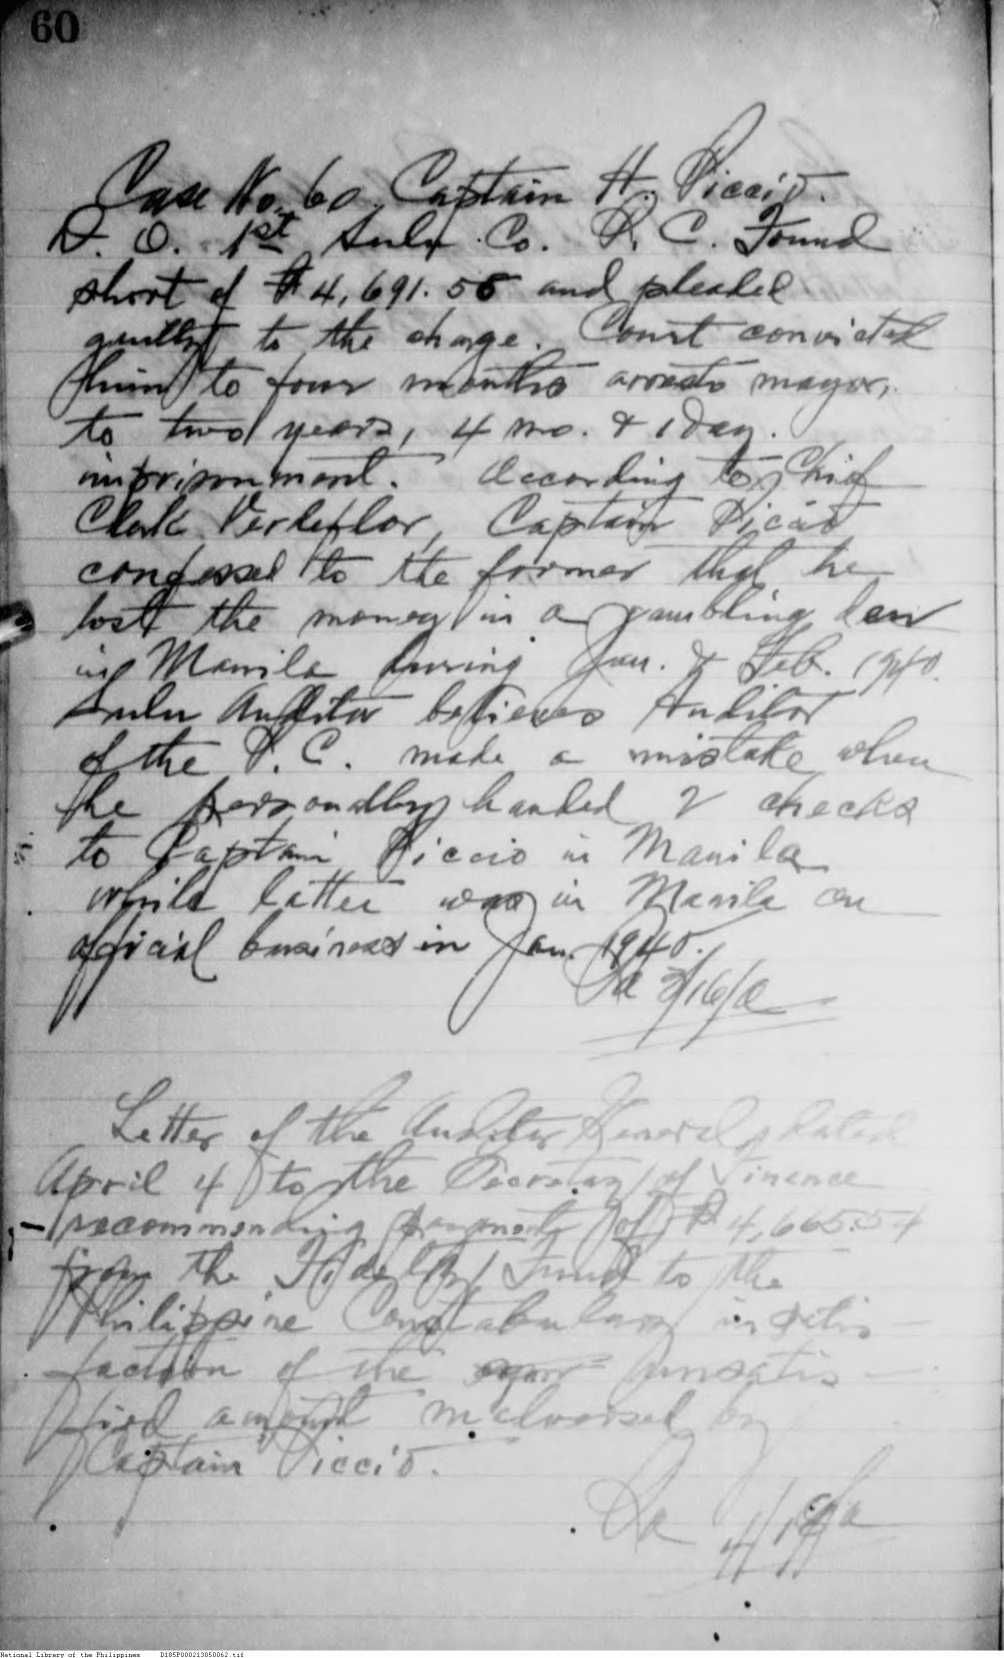 60
Case No. 60. Captain H. Piccio.
D. O. 1st Sulu Co. P. C. Found
short of ₱4,691.58 and pleaded
guilty to the charge. Court convicted
him to four months arresto mayor,
to two years, 4 mo. & 1 day.
imprisonment. According to Chief
Clerk Verdeflor, Captain Piccio
confessed to the former that he
lost the money in a gambling den
in Manila during Jan. & Feb. 1940.
Sulu Auditor believes Auditor
of the P. C. made a mistake when
he personally handed 2 checks
to Captain Piccio in Manila
while latter was in Manila on
official business in Jan. 1940.
Letter of the Auditor General dated
April 4 to the Secretary of Finance
recommending payment of ₱4,665.54
from the Fidelity Fund to the
Philippine Constabulary in satis-
faction of the unsatis-
fied amount malversed by
Captain Piccio.
National Library of the Philippines D185P000213050062.tif